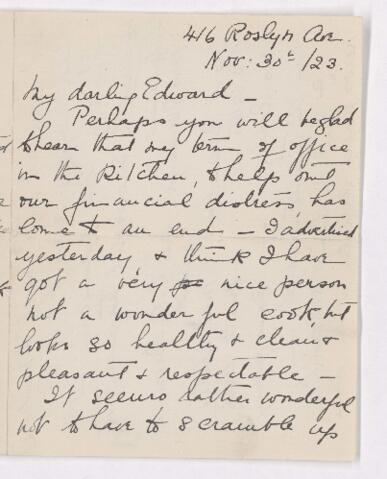 416 Roslyn Ave.
Nov: 30th /23.
My darling Edward –
Perhaps you will be glad
to hear that my term of office
in the Kitchen, to help out
our financial distress, has
come to an end – I advertised
yesterday & think I have
got a very nice person
not a wonderful cook, but
looks so healthy & clean &
pleasant & respectable –
It seems rather wonderful
not to have to scramble up